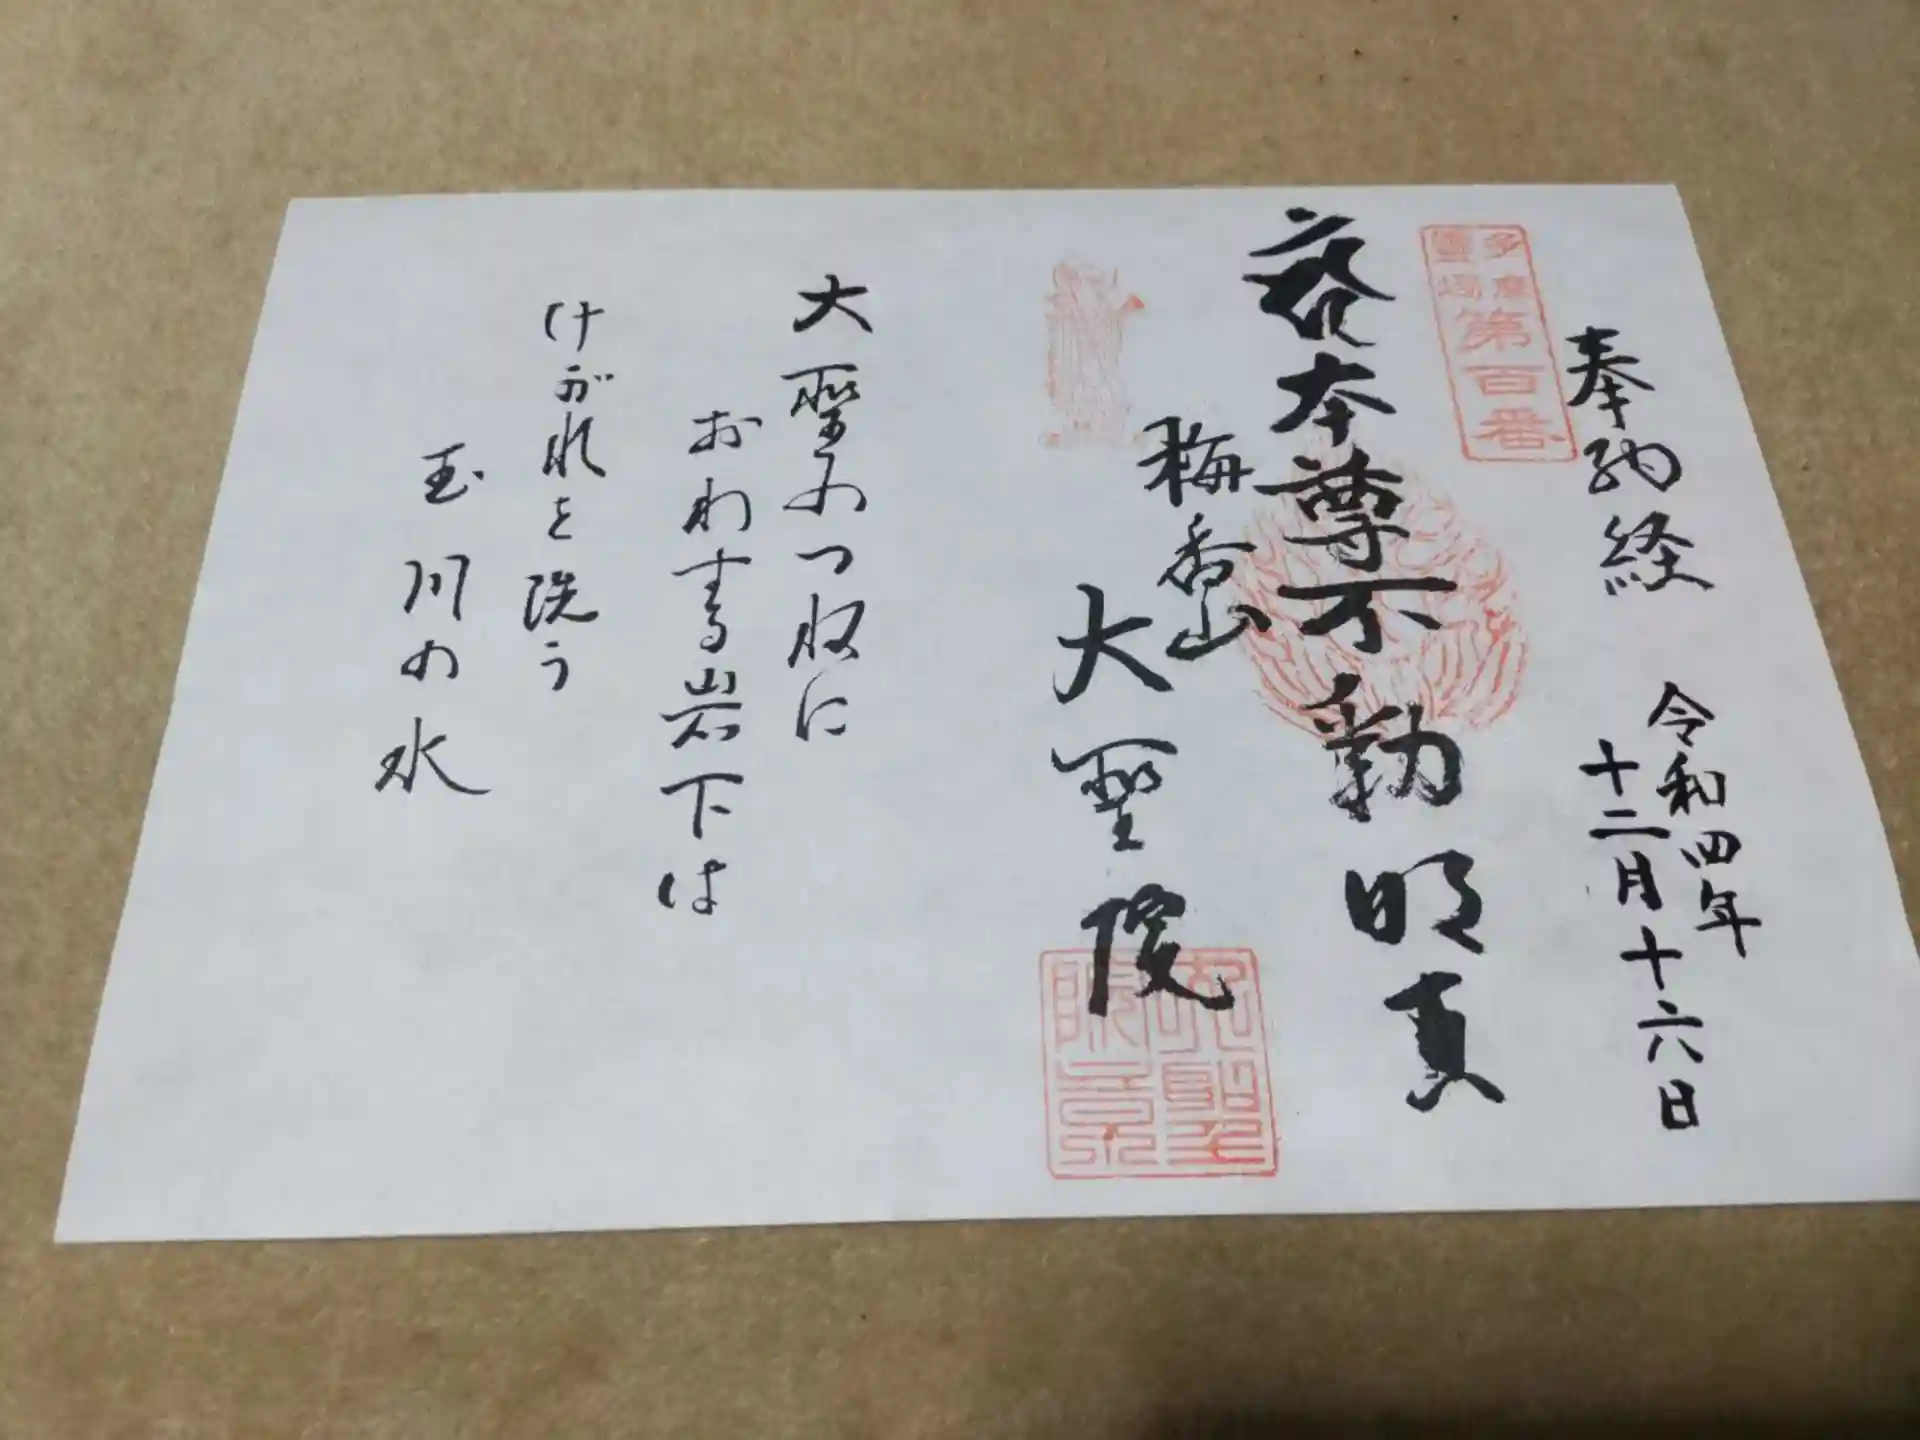 奉納経
令和四年
十二月十六日
多摩
霊場
第百番
本尊不動明真
梅香山
大聖院
大聖のつねに
おわする岩下は
けがれを洗う
玉川の水